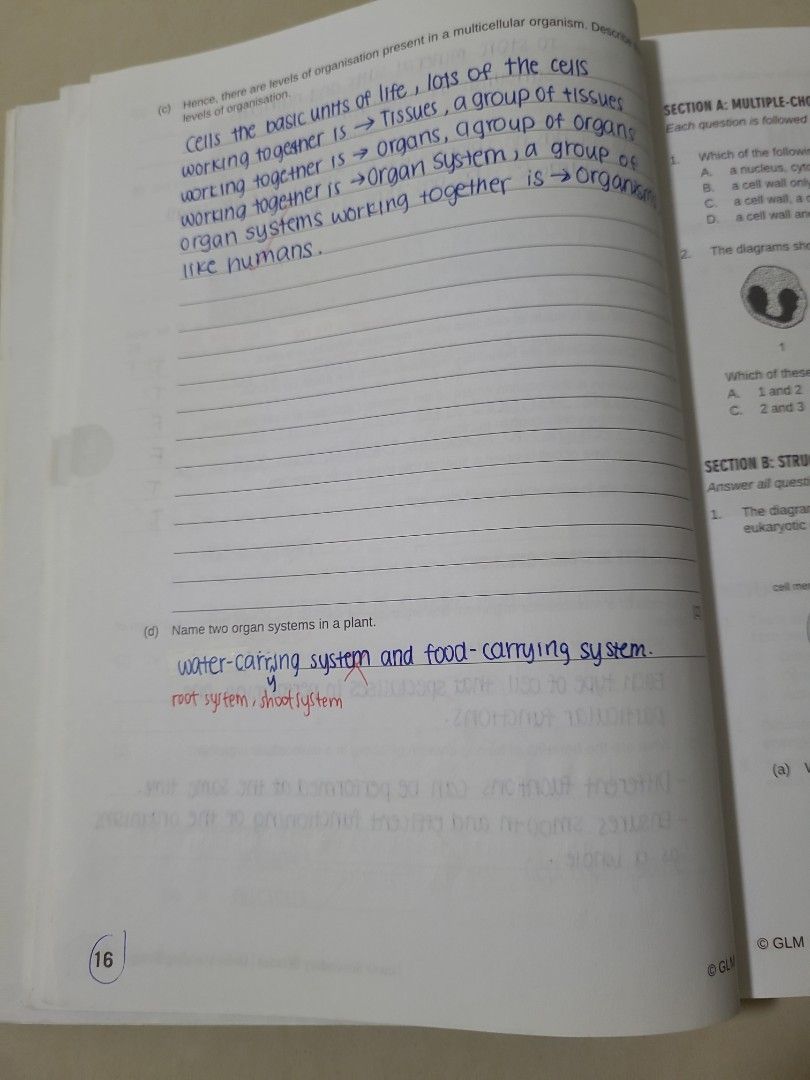 (c) Hence, there are levels of organisation present in a multicellular organism. Describe
levels of organisation.
cells the basic units of life, lots of the cells
working together is → Tissues, a group of tissues
working together is → organs, a group of organs
working together is → organ system, a group of
organ systems working together is → organism
like humans.
(d) Name two organ systems in a plant.
water-carrying system and food-carrying system.
y
root system, shoot system
16
© GLM
SECTION A: MULTIPLE-CHO
Each question is followed
1. Which of the followin
A. a nucleus, cyto
B. a cell wall only
C. a cell wall, a c
D. a cell wall an
2. The diagrams sho
1
Which of these
A. 1 and 2
C. 2 and 3
SECTION B: STRU
Answer all questi
1. The diagra
eukaryotic
cell me
(a)
© GLM